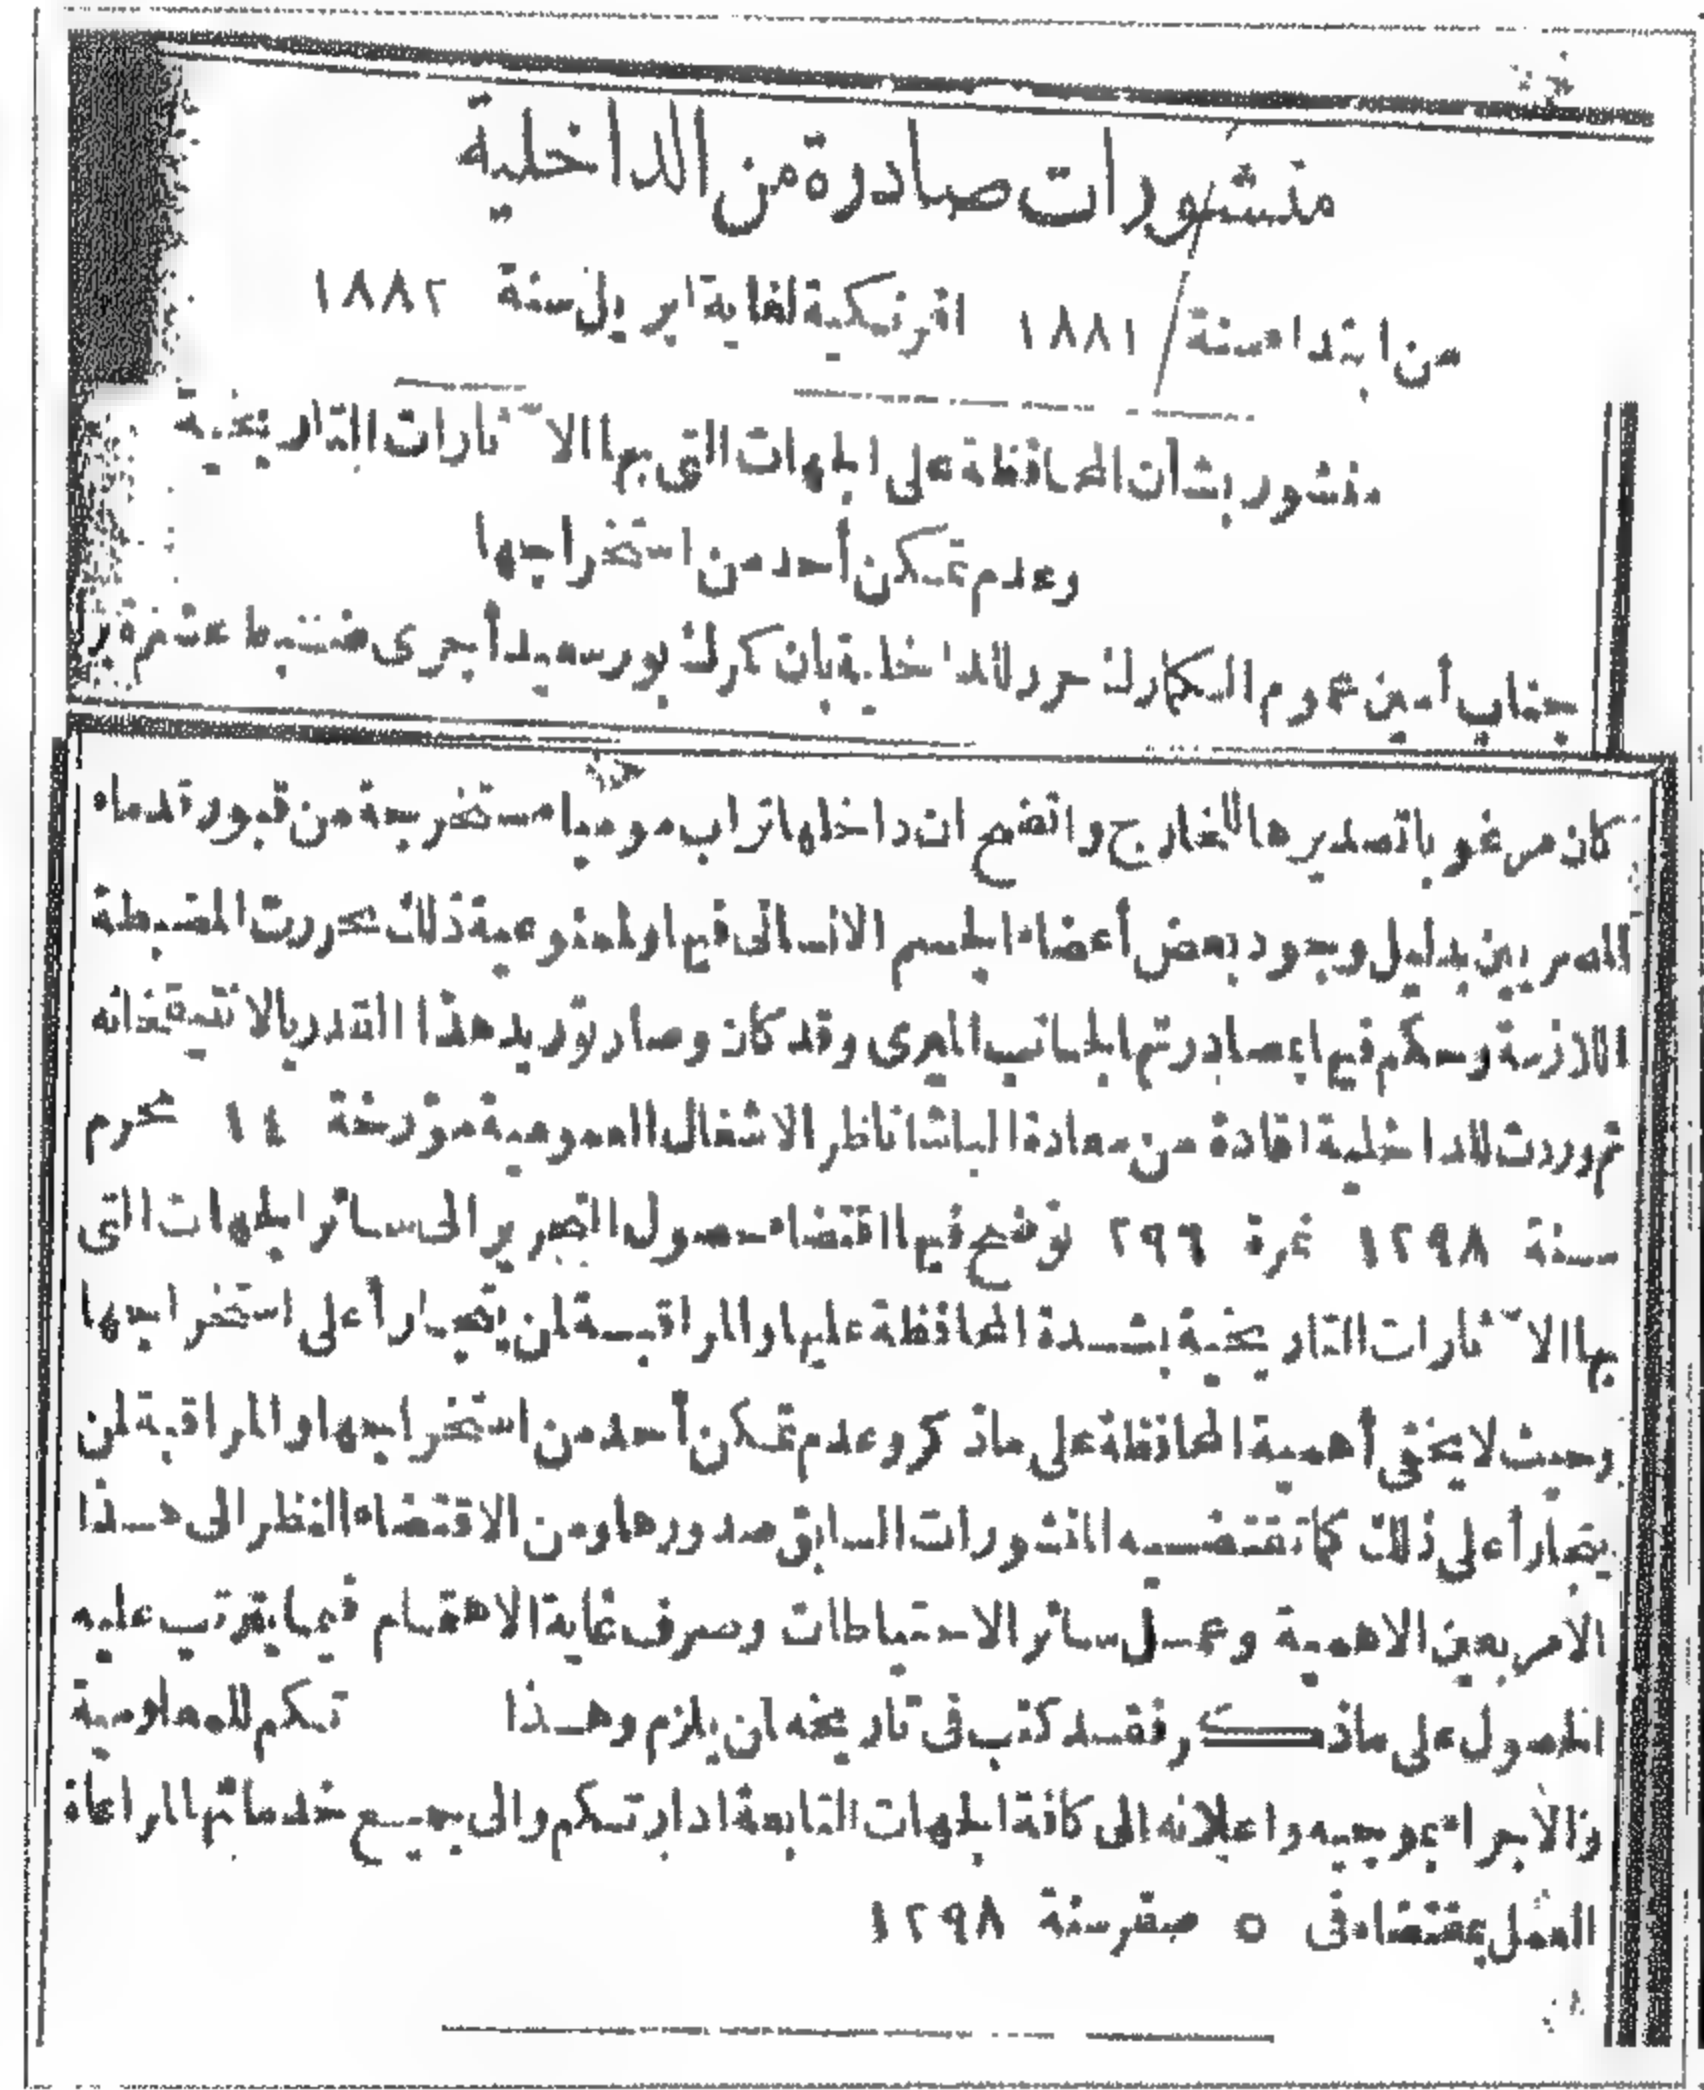 منشورات صادرة من الداخلية
من ابتداء سنة ١٨٨١ افرنكية لغاية ابريل سنة ١٨٨٢
منشور بشأن المحافظة على الجهات التي بها الآثارات التاريخية
وعدم تمكن أحد من استخراجها
جناب أمين عموم الكمارك حرر للداخلية بان كمرك بورسعيد أجرى ضبط
كان مرغوبا تصديرها للخارج واتضح ان داخلها تراب مومياء مستخرجة من قبور قدماء
المصريين بدليل وجود بعض أعضاء الجسم الانسانى فيها ولممنوعية ذلك تحررت المضبطة
اللازمة وحكم فيها بمصادرتها لجانب الميرى وقد كان وصار توريد هذا القدر بالانتيقخانه
ثم وردت للداخلية افادة من سعادة الباشا ناظر الاشغال العمومية مؤرخة ١٤ محرم
سنة ١٢٩٨ نمرة ٢٩٦ توضح فيها اقتضاء حصول التحرير الى سائر الجهات التى
بها الآثارات التاريخية بشدة المحافظة عليها والمراقبة لمن يتجارأ على استخراجها
وحيث لا يخفى أهمية المحافظة على ماذكر وعدم تمكن أحد من استخراجها والمراقبة لمن
يتجارأ على ذلك كما تقتضيه المنشورات السابق صدورها ومن الاقتضاء النظر الى هذا
الأمر بعين الاهمية وعمل سائر الاحتياطات وصرف غاية الاهتمام فيما يترتب عليه
الحصول على ماذكر فقد كتب فى تاريخه لمن يلزم وهذا لكم للمعلومية
والاجراء بموجبه واعلانه الى كافة الجهات التابعة ادارتكم والى جميع خدماتها لمراعاة
العمل بمقتضاه فى ٥ صفر سنة ١٢٩٨